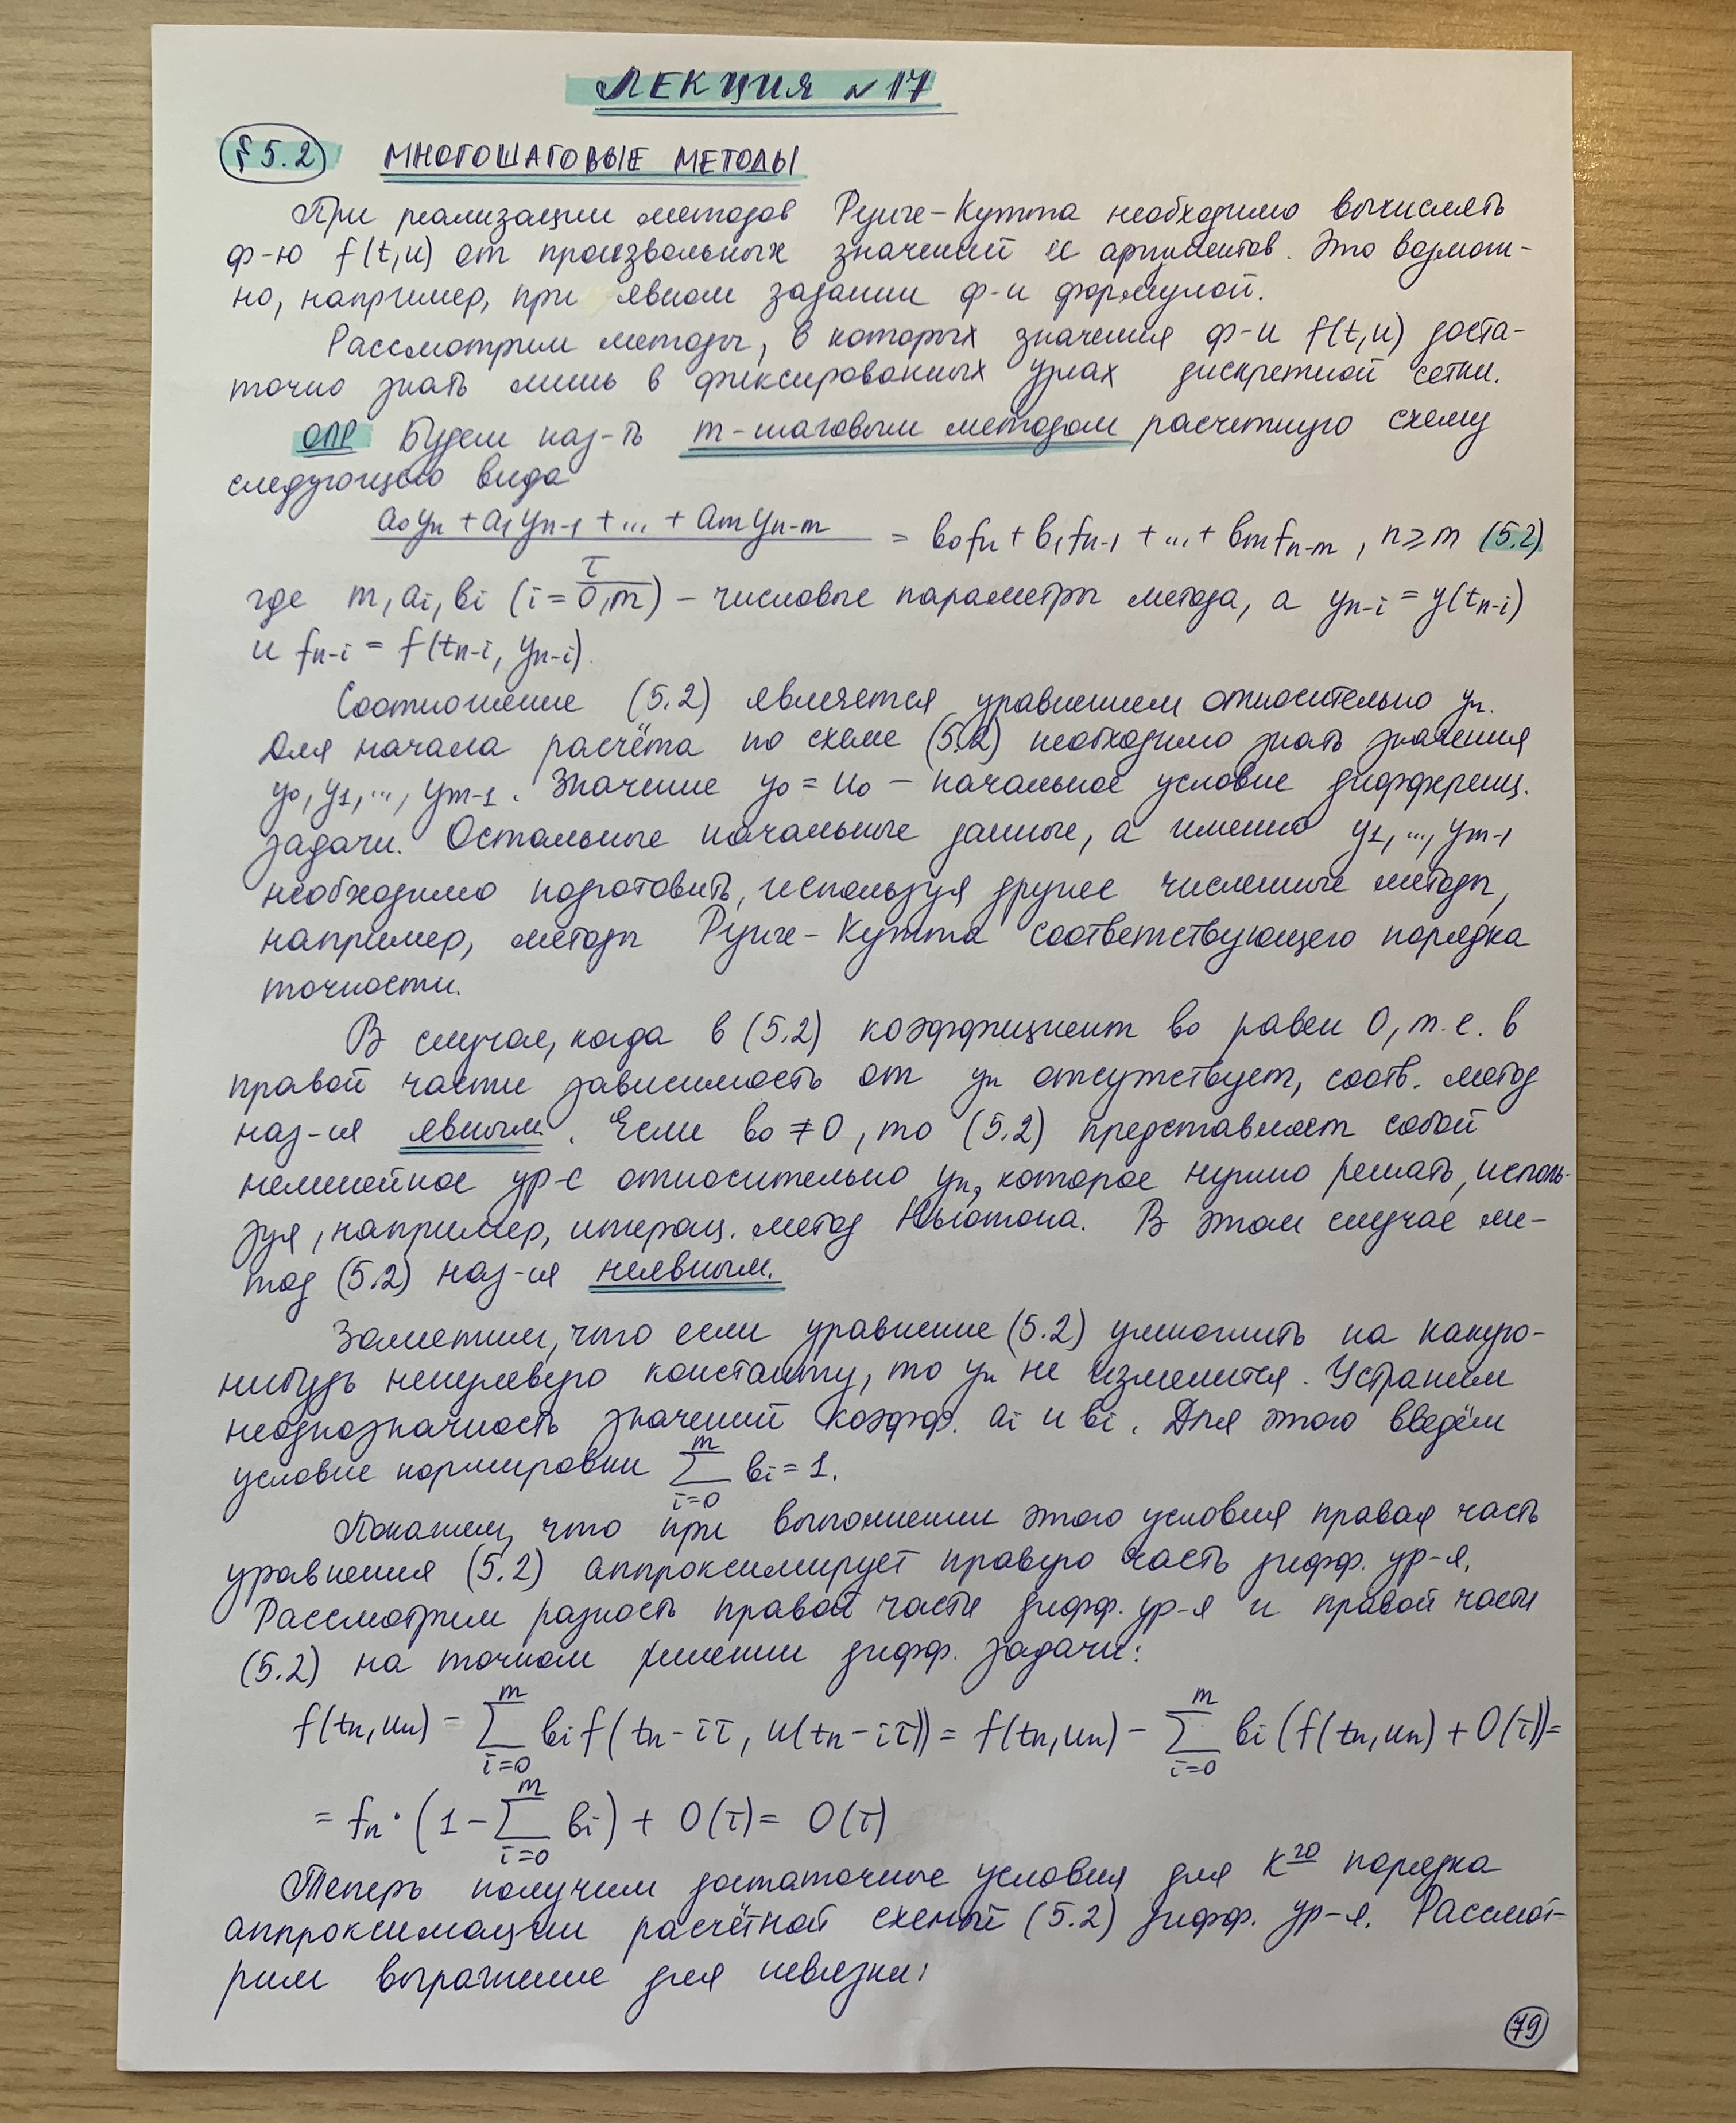 ЛЕКЦИЯ №17
§5.2 МНОГОШАГОВЫЕ МЕТОДЫ
При реализации методов Рунге-Кутта необходимо вычислять
ф-ю f(t,u) от произвольных значений её аргументов. Это возмож-
но, например, при явном задании ф-и формулой.
Рассмотрим методы, в которых значения ф-и f(t,u) доста-
точно знать лишь в фиксированных узлах дискретной сетки.
ОПР Будем наз-ть m-шаговым методом расчетную схему
следующего вида
(a₀yₙ + a₁yₙ₋₁ + ... + aₘyₙ₋ₘ)/τ = b₀fₙ + b₁fₙ₋₁ + ... + bₘfₙ₋ₘ, n ≥ m (5.2)
где m, aᵢ, bᵢ (i = 0,m) – числовые параметры метода, а yₙ₋ᵢ = y(tₙ₋ᵢ)
и fₙ₋ᵢ = f(tₙ₋ᵢ, yₙ₋ᵢ).
Соотношение (5.2) является уравнением относительно yₙ.
Для начала расчёта по схеме (5.2) необходимо знать значения
y₀, y₁, ..., yₘ₋₁. Значение y₀ = u₀ – начальное условие дифференц.
задачи. Остальные начальные данные, а именно y₁, ..., yₘ₋₁
необходимо подготовить, используя другие численные методы,
например, методы Рунге-Кутта соответствующего порядка
точности.
В случае, когда в (5.2) коэффициент b₀ равен 0, т.е. в
правой части зависимость от yₙ отсутствует, соотв. метод
наз-ся явным. Если b₀ ≠ 0, то (5.2) представляет собой
нелинейное ур-е относительно yₙ, которое нужно решать, исполь-
зуя, например, итерац. метод Ньютона. В этом случае ме-
тод (5.2) наз-ся неявным.
Заметим, что если уравнение (5.2) умножить на какую-
нибудь ненулевую константу, то yₙ не изменится. Устраним
неоднозначность значений коэфф. aᵢ и bᵢ. Для этого введём
условие нормировки ∑_{i=0}^{m} bᵢ = 1.
Покажем, что при выполнении этого условия правая часть
уравнения (5.2) аппроксимирует правую часть дифф. ур-я.
Рассмотрим разность правой части дифф. ур-я и правой части
(5.2) на точном решении дифф. задачи:
f(tₙ,uₙ) – ∑_{i=0}^{m} bᵢf(tₙ – iτ, u(tₙ – iτ)) = f(tₙ,uₙ) – ∑_{i=0}^{m} bᵢ(f(tₙ,uₙ) + O(τ)) =
= fₙ · (1 – ∑_{i=0}^{m} bᵢ) + O(τ) = O(τ)
Теперь получим достаточные условия для k^го порядка
аппроксимации расчётной схемой (5.2) дифф. ур-я. Рассмот-
рим выражение для невязки:
79